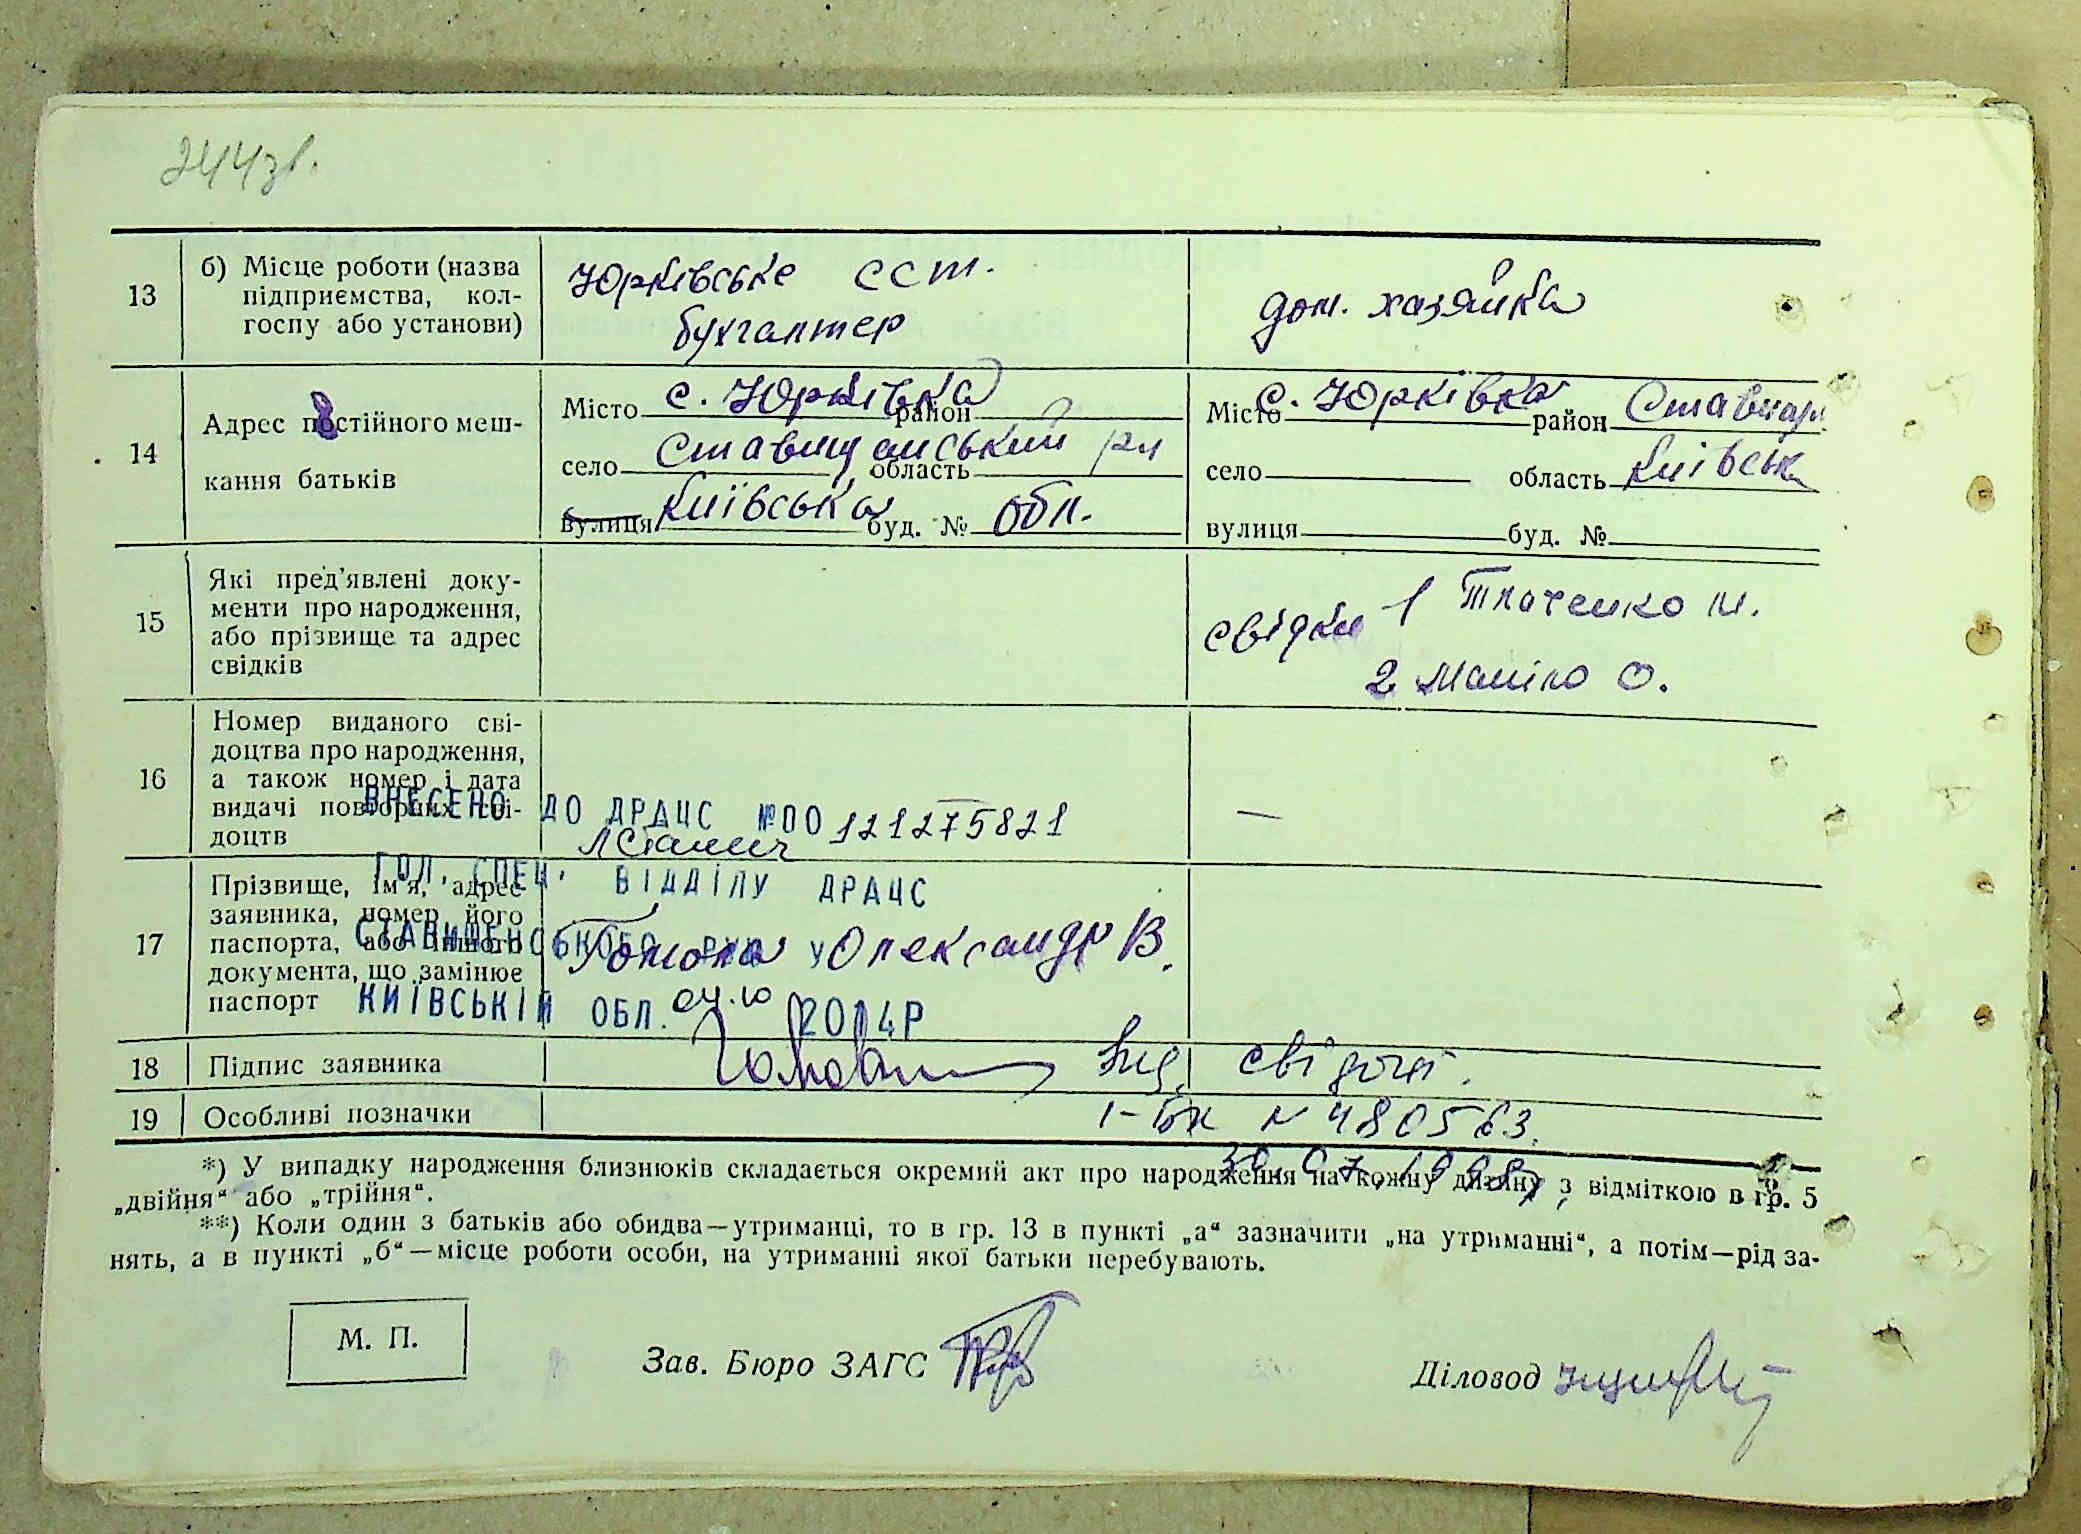 244 зв.
13 б) Місце роботи (назва підприємства, колгоспу або установи)
Юрківське ССТ. бухгалтер
дом. хазяйка
14 Адрес постійного мешкання батьків
Місто с. Юрківка район
село Ставищанський рн область
вулиця Київська буд. № обл.
Місто с. Юрківка район Ставищ
село область Київськ
вулиця буд. №
15 Які пред'явлені документи про народження, або прізвище та адрес свідків
свідки 1 Ткаченко М.
2 Маніло О.
16 Номер виданого свідоцтва про народження, а також номер і дата видачі повторних свідоцтв
—
ВНЕСЕНО ДО ДРАЦС №00121275821
ГОЛ. СПЕЦ. ВІДДІЛУ ДРАЦС
СТАВИЩЕНСЬКОГО РУЮ У
КИЇВСЬКІЙ ОБЛ. 04.10 2014Р
17 Прізвище, ім'я, адрес заявника, номер його паспорта, або іншого документа, що замінює паспорт
Олександр В.
18 Підпис заявника
19 Особливі позначки
Вид. свідоцт.
1-БК N 480563.
30.07.1998р
*) У випадку народження близнюків складається окремий акт про народження на кожну дитину з відміткою в гр. 5
„двійня“ або „трійня“.
**) Коли один з батьків або обидва—утриманці, то в гр. 13 в пункті „а“ зазначити „на утриманні“, а потім—рід за-
нять, а в пункті „б“—місце роботи особи, на утриманні якої батьки перебувають.
М. П.
Зав. Бюро ЗАГС
Діловод